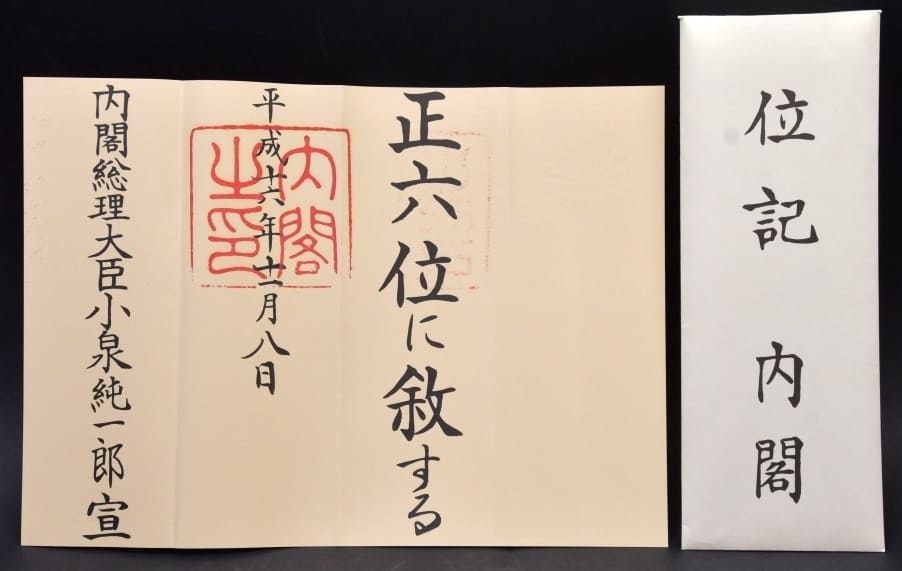 正六位に敘する
平成十六年十一月八日
内閣之印
内閣総理大臣小泉純一郎宣
位記 内閣